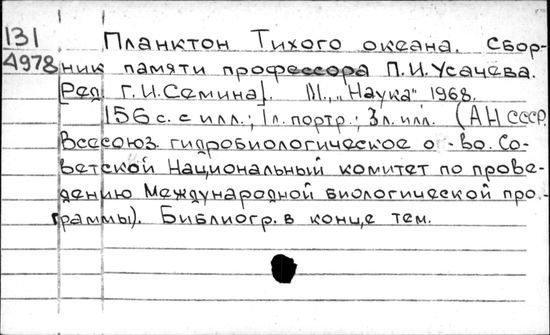 131 Планктон Тихого океана. Сбор-
4978 ник памяти профессора П.И.Усачева.
[Ред. Г.И.Семина]. М., „Наука" 1968.
156 с. с илл.; 1л. портр.; 3л. илл. (АН СССР.
Всесоюз. гидробиологическое о-во. Со-
ветской Национальный комитет по прове-
дению Международной биологической про-
граммы). Библиогр. в конце тем.